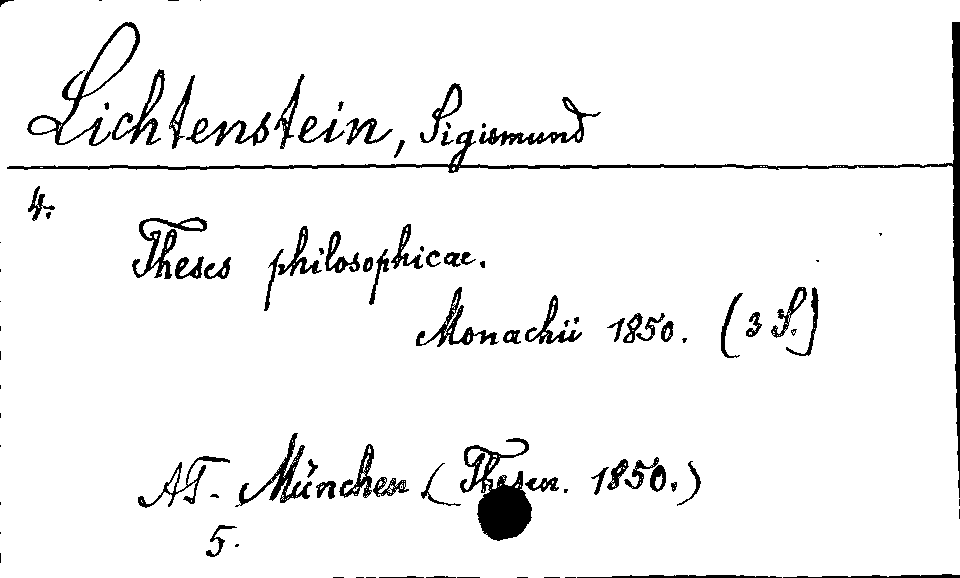 Lichtenstein, Sigismund
4.
Theses philosophicae.
Monachii 1850. (3 S.)
AT- München (Thesen. 1850.)
5.